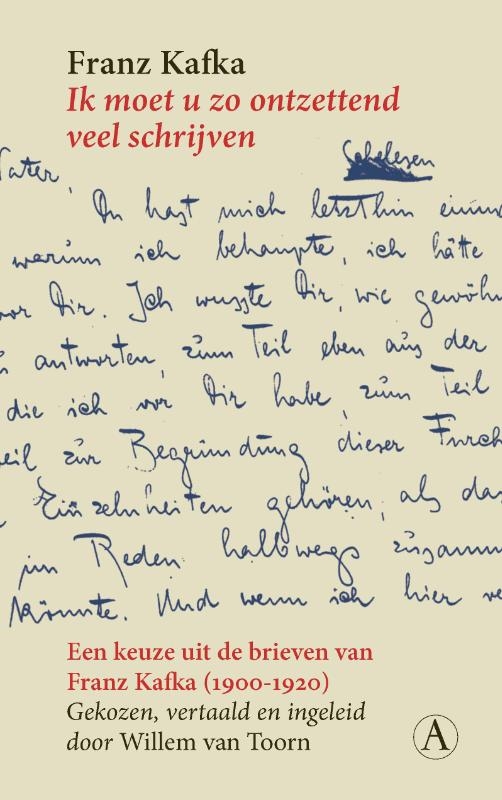 Franz Kafka
Ik moet u zo ontzettend
veel schrijven
Schelesen
Vater,
Du hast mich letzthin einma
warum ich behaupte, ich hätte
vor Dir. Ich wusste Dir, wie gewöhn
antworten, zum Teil eben aus der
die ich vor Dir habe, zum Teil
weil zur Begründung dieser Furch
Einzelnheiten gehören, als das
im Reden halbwegs zusamm
könnte. Und wenn ich hier ve
Een keuze uit de brieven van
Franz Kafka (1900-1920)
Gekozen, vertaald en ingeleid
door Willem van Toorn
A